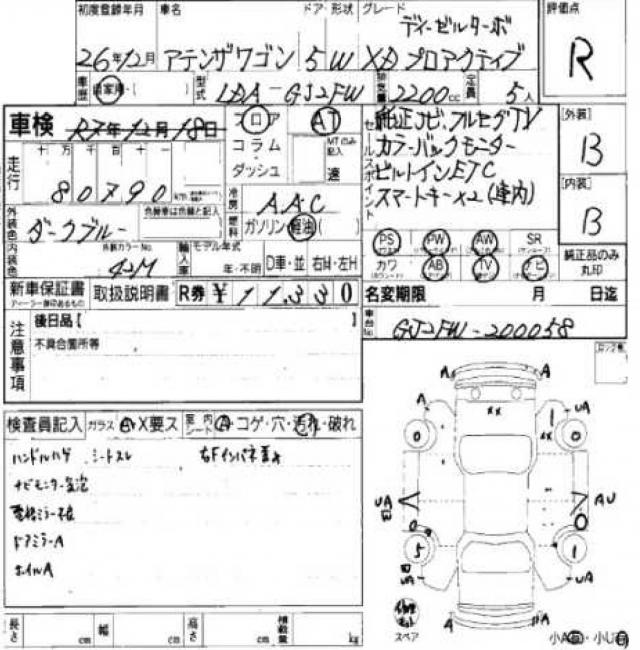 初度登録年月 車名 ドア 形状 グレード 評価点
ディーゼルターボ
26年12月 アテンザワゴン 5W XD プロアクティブ R
車歴 自家用・( ) 型式 LDA-GJ2FW 排気量 2200cc 定員 5人
車検 R7年12月18日 フロア AT セールスポイント 純正ナビ、フルセグTV [外装]
コラム MTのみ記入 カラーバックモニター B
走行 十 万 千 百 十 ダッシュ 速 ビルトインETC [内装]
80790 冷房 AAC スマートキー×2 (車内) B
外装色 ダークブルー 色替車は色替と記入 燃料 ガソリン 軽油 ( ) PS PW AW SR 純正品のみ丸印
内装色 外装カラーNo. 42M 輸入車 モデル年式 年・不明 D車・並 右H・左H カワ AB TV ナビ
新車保証書 取扱説明書 R券 ¥ 11,330 名変期限 月 日迄
注意事項 後日品【 車台No. GJ2FW-200058
不具合箇所等
A A
検査員記入 ガラス A・X要ス 室内シート A・コゲ・穴・汚れ・破れ
A UA
XX
XX
0 0
ハンドルハゲ シートスレ
UA AU
0 0
5 1
ドアミラーA
ホイルA
UA UA
A A
長さ cm 幅 cm 高さ cm 積載量 kg スペア 小A ・小U